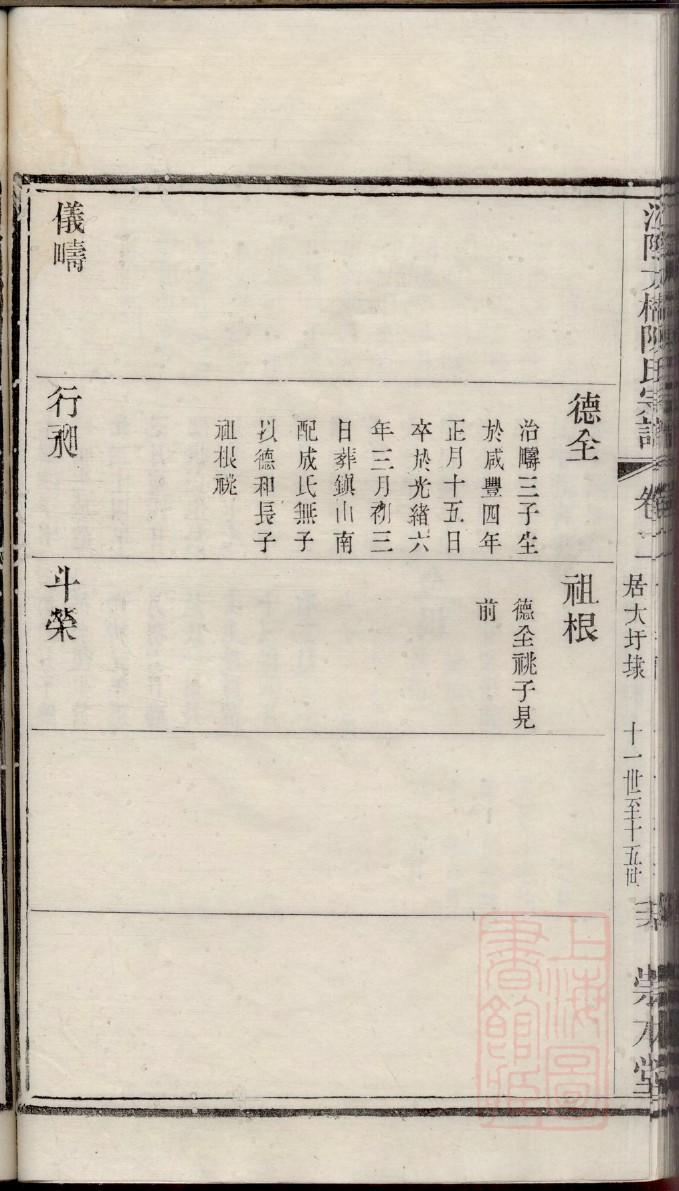 德全
治疇三子生
於咸豐四年
正月十五日
卒於光緒六
年三月初三
日葬鎮山南
配成氏無子
以德和長子
祖根祧
祖根
德全祧子見
前
儀疇
行昶
斗榮
陳氏宗譜
卷二
居大圩埭
十一世至十五世
崇本堂
上海圖書館藏